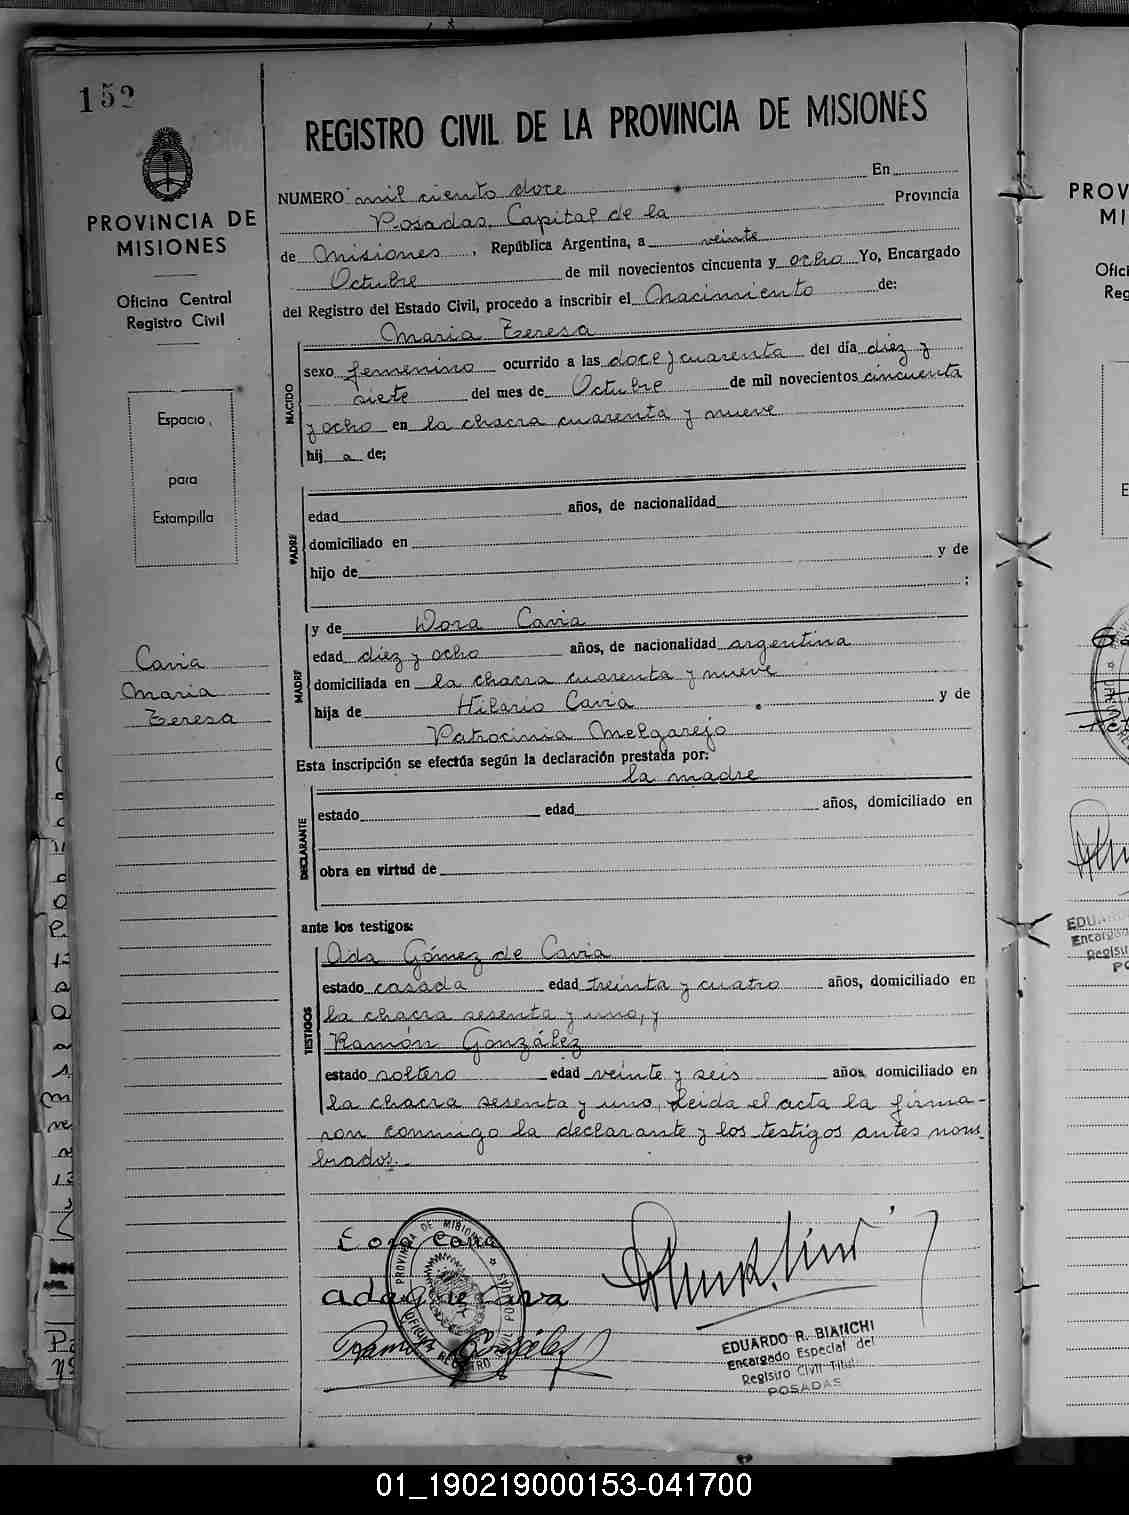 152
REGISTRO CIVIL DE LA PROVINCIA DE MISIONES
PROVINCIA DE
MISIONES
Oficina Central
Registro Civil
Espacio
para
Estampilla
Cavia
Maria
Teresa
NUMERO mil ciento doce En
Posadas, Capital de la Provincia
de Misiones, República Argentina, a veinte
Octubre de mil novecientos cincuenta y ocho Yo, Encargado
del Registro del Estado Civil, procedo a inscribir el Nacimiento de:
NACIDO
Maria Teresa
sexo femenino ocurrido a las doce y cuarenta del día diez y
siete del mes de Octubre de mil novecientos cincuenta
y ocho en la chacra cuarenta y nueve
hij a de;
PADRE
edad años, de nacionalidad
domiciliado en
hijo de y de
;
MADRE
y de Dora Cavia
edad diez y ocho años, de nacionalidad argentina
domiciliada en la chacra cuarenta y nueve
hija de Hilario Cavia y de
Patrocinia Melgarejo
Esta inscripción se efectúa según la declaración prestada por:
la madre
DECLARANTE
estado edad años, domiciliado en
obra en virtud de
ante los testigos:
TESTIGOS
Ada Gómez de Cavia
estado casada edad treinta y cuatro años, domiciliado en
la chacra sesenta y uno, y
Ramón González
estado soltero edad veinte y seis años, domiciliado en
la chacra sesenta y uno, Leida el acta la firma-
ron conmigo la declarante y los testigos antes nom-
brados.
Cavia
Ada G de Cavia
Ramón González
PROVINCIA DE MISIONES
POSADAS
EDUARDO R. BIANCHI
Encargado Especial del
Registro Civil
POSADAS
PROV
MI
Ofici
Reg
E
EDU
Encargado
Regist
PO
01_190219000153-041700